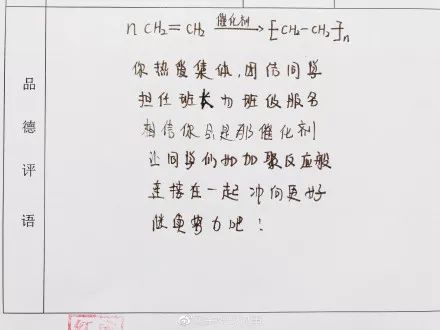 n CH₂=CH₂ 催化剂→ [CH₂-CH₂]n
品德评语
你热爱集体,团结同学
担任班长为班级服务
相信你只是那催化剂
让同学们如加聚反应般
连接在一起 冲向更好
继续努力吧!